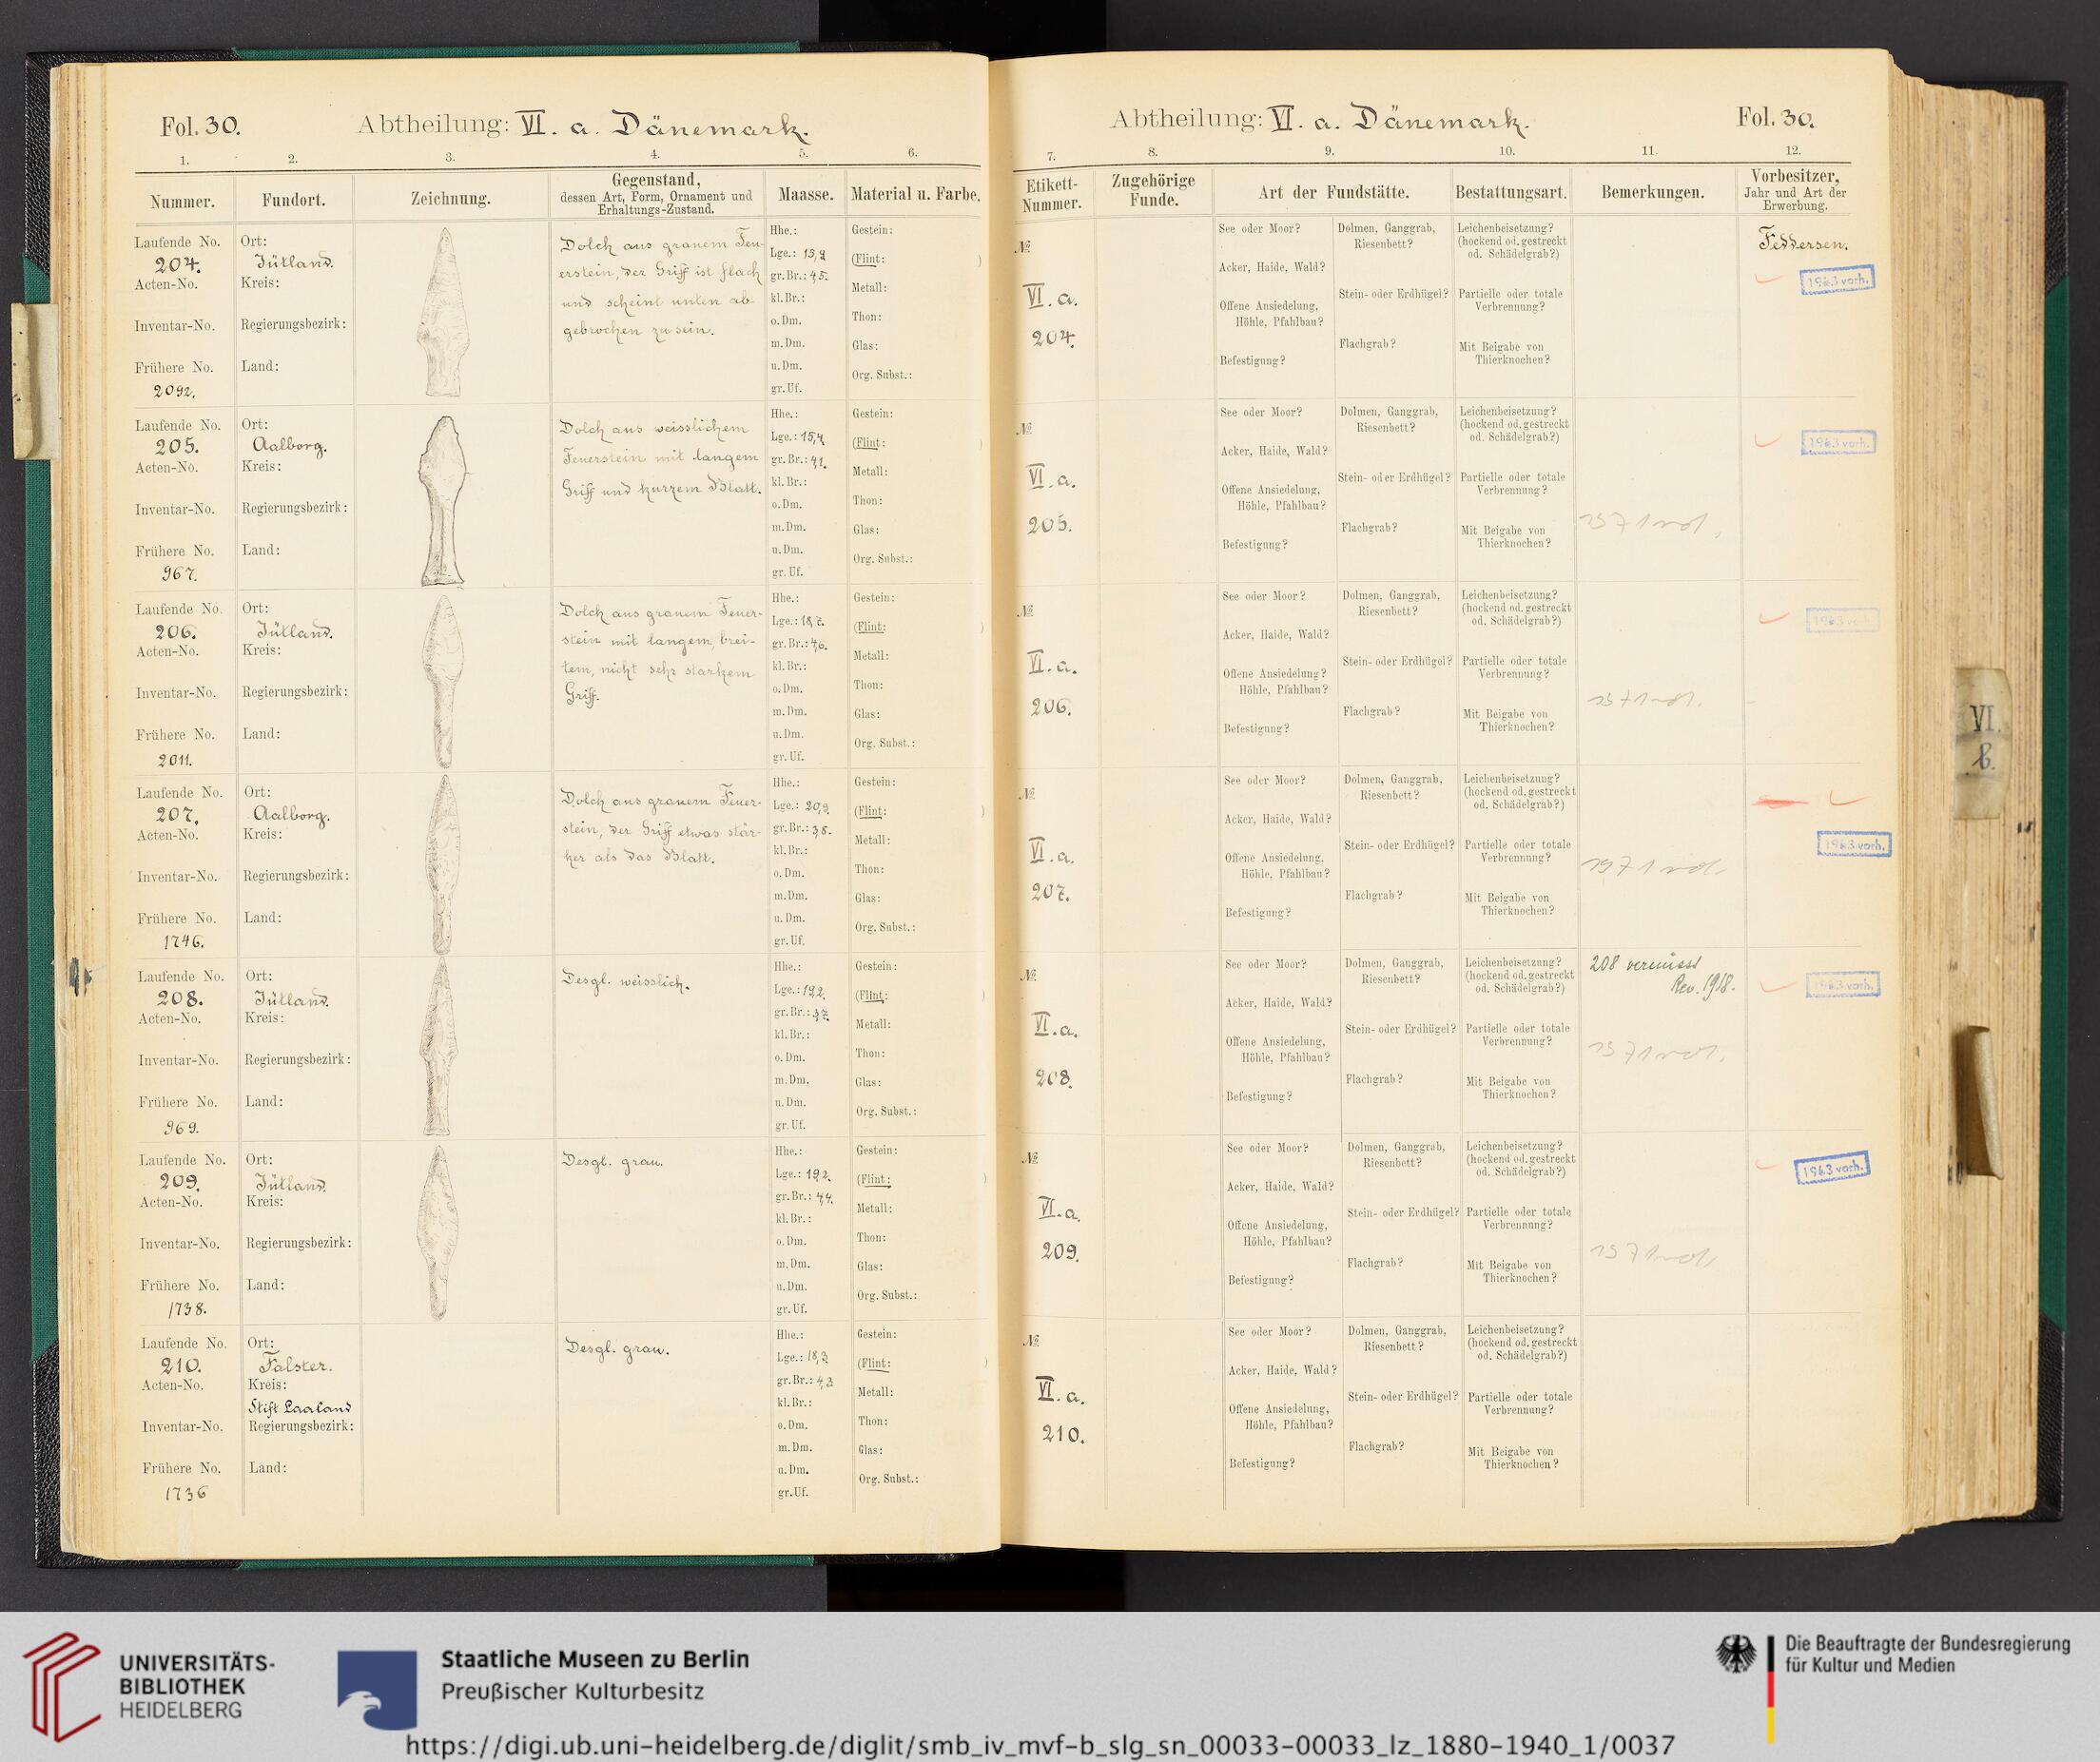 Fol. 30.
Abtheilung: VI. a. Dänemark.
1. 2. 3. 4. 5. 6.
Nummer. Fundort. Zeichnung. Gegenstand, dessen Art, Form, Ornament und Erhaltungs-Zustand. Maasse. Material u. Farbe.
Laufende No. 204.
Acten-No.
Inventar-No.
Frühere No. 2092.
Ort: Jütland.
Kreis:
Regierungsbezirk:
Land:
Dolch aus grauem Feu-
erstein, der Griff ist flach
und scheint unten ab-
gebrochen zu sein.
Hhe.:
Lge.: 15,9
gr. Br.: 4,5.
kl. Br.:
o. Dm.
m. Dm.
u. Dm.
gr. Uf.
Gestein:
(Flint: )
Metall:
Thon:
Glas:
Org. Subst.:
Laufende No. 205.
Acten-No.
Inventar-No.
Frühere No. 967.
Ort: Aalborg.
Kreis:
Regierungsbezirk:
Land:
Dolch aus weisslichem
Feuerstein mit langem
Griff und kurzem Blatt.
Hhe.:
Lge.: 15,4
gr. Br.: 4,1.
kl. Br.:
o. Dm.
m. Dm.
u. Dm.
gr. Uf.
Gestein:
(Flint: )
Metall:
Thon:
Glas:
Org. Subst.:
Laufende No. 206.
Acten-No.
Inventar-No.
Frühere No. 2011.
Ort: Jütland.
Kreis:
Regierungsbezirk:
Land:
Dolch aus grauem Feuer-
stein mit langem, brei-
tem, nicht sehr starkem
Griff.
Hhe.:
Lge.: 18,7.
gr. Br.: 4,6.
kl. Br.:
o. Dm.
m. Dm.
u. Dm.
gr. Uf.
Gestein:
(Flint: )
Metall:
Thon:
Glas:
Org. Subst.:
Laufende No. 207.
Acten-No.
Inventar-No.
Frühere No. 1746.
Ort: Aalborg.
Kreis:
Regierungsbezirk:
Land:
Dolch aus grauem Feuer-
stein, der Griff etwas stär-
ker als das Blatt.
Hhe.:
Lge.: 20,9
gr. Br.: 3,8.
kl. Br.:
o. Dm.
m. Dm.
u. Dm.
gr. Uf.
Gestein:
(Flint: )
Metall:
Thon:
Glas:
Org. Subst.:
Laufende No. 208.
Acten-No.
Inventar-No.
Frühere No. 969.
Ort: Jütland.
Kreis:
Regierungsbezirk:
Land:
Desgl. weisslich.
Hhe.:
Lge.: 19,2.
gr. Br.: 3,7.
kl. Br.:
o. Dm.
m. Dm.
u. Dm.
gr. Uf.
Gestein:
(Flint: )
Metall:
Thon:
Glas:
Org. Subst.:
Laufende No. 209.
Acten-No.
Inventar-No.
Frühere No. 1738.
Ort: Jütland.
Kreis:
Regierungsbezirk:
Land:
Desgl. grau.
Hhe.:
Lge.: 19,2.
gr. Br.: 4,4.
kl. Br.:
o. Dm.
m. Dm.
u. Dm.
gr. Uf.
Gestein:
(Flint: )
Metall:
Thon:
Glas:
Org. Subst.:
Laufende No. 210.
Acten-No.
Inventar-No.
Frühere No. 1736
Ort: Falster.
Kreis: Stift Laaland
Regierungsbezirk:
Land:
Desgl. grau.
Hhe.:
Lge.: 18,3
gr. Br.: 4,3
kl. Br.:
o. Dm.
m. Dm.
u. Dm.
gr. Uf.
Gestein:
(Flint: )
Metall:
Thon:
Glas:
Org. Subst.:
Abtheilung: VI. a. Dänemark.
Fol. 30.
7. 8. 9. 10. 11. 12.
Etikett-Nummer. Zugehörige Funde. Art der Fundstätte. Bestattungsart. Bemerkungen. Vorbesitzer, Jahr und Art der Erwerbung.
№ VI. a. 204.
See oder Moor?
Acker, Haide, Wald?
Offene Ansiedelung, Höhle, Pfahlbau?
Befestigung?
Dolmen, Ganggrab, Riesenbett?
Stein- oder Erdhügel?
Flachgrab?
Leichenbeisetzung? (hockend od. gestreckt od. Schädelgrab?)
Partielle oder totale Verbrennung?
Mit Beigabe von Thierknochen?
Feddersen.
1963 vorh.
№ VI. a. 205.
See oder Moor?
Acker, Haide, Wald?
Offene Ansiedelung, Höhle, Pfahlbau?
Befestigung?
Dolmen, Ganggrab, Riesenbett?
Stein- oder Erdhügel?
Flachgrab?
Leichenbeisetzung? (hockend od. gestreckt od. Schädelgrab?)
Partielle oder totale Verbrennung?
Mit Beigabe von Thierknochen?
1963 vorh.
№ VI. a. 206.
See oder Moor?
Acker, Haide, Wald?
Offene Ansiedelung? Höhle, Pfahlbau?
Befestigung?
Dolmen, Ganggrab, Riesenbett?
Stein- oder Erdhügel?
Flachgrab?
Leichenbeisetzung? (hockend od. gestreckt od. Schädelgrab?)
Partielle oder totale Verbrennung?
Mit Beigabe von Thierknochen?
1963 vorh.
№ VI. a. 207.
See oder Moor?
Acker, Haide, Wald?
Offene Ansiedelung, Höhle, Pfahlbau?
Befestigung?
Dolmen, Ganggrab, Riesenbett?
Stein- oder Erdhügel?
Flachgrab?
Leichenbeisetzung? (hockend od. gestreckt od. Schädelgrab?)
Partielle oder totale Verbrennung?
Mit Beigabe von Thierknochen?
1963 vorh.
№ VI. a. 208.
See oder Moor?
Acker, Haide, Wald?
Offene Ansiedelung, Höhle, Pfahlbau?
Befestigung?
Dolmen, Ganggrab, Riesenbett?
Stein- oder Erdhügel?
Flachgrab?
Leichenbeisetzung? (hockend od. gestreckt od. Schädelgrab?)
Partielle oder totale Verbrennung?
Mit Beigabe von Thierknochen?
208 vermisst
Rev. 1918.
1963 vorh.
№ VI. a. 209.
See oder Moor?
Acker, Haide, Wald?
Offene Ansiedelung, Höhle, Pfahlbau?
Befestigung?
Dolmen, Ganggrab, Riesenbett?
Stein- oder Erdhügel?
Flachgrab?
Leichenbeisetzung? (hockend od. gestreckt od. Schädelgrab?)
Partielle oder totale Verbrennung?
Mit Beigabe von Thierknochen?
1963 vorh.
№ VI. a. 210.
See oder Moor?
Acker, Haide, Wald?
Offene Ansiedelung, Höhle, Pfahlbau?
Befestigung?
Dolmen, Ganggrab, Riesenbett?
Stein- oder Erdhügel?
Flachgrab?
Leichenbeisetzung? (hockend od. gestreckt od. Schädelgrab?)
Partielle oder totale Verbrennung?
Mit Beigabe von Thierknochen?
VI.
b.
UNIVERSITÄTS-
BIBLIOTHEK
HEIDELBERG
Staatliche Museen zu Berlin
Preußischer Kulturbesitz
Die Beauftragte der Bundesregierung
für Kultur und Medien
https://digi.ub.uni-heidelberg.de/diglit/smb_iv_mvf-b_slg_sn_00033-00033_lz_1880-1940_1/0037